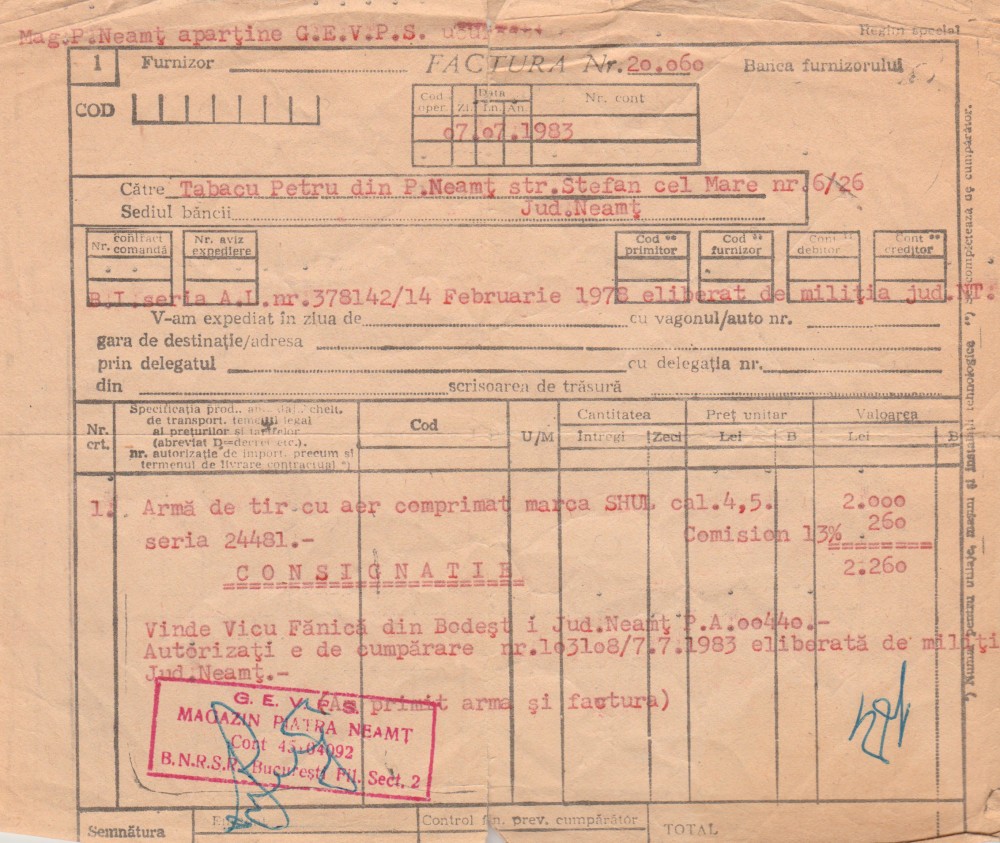 Mag.P.Neamţ aparţine G.E.V.P.S.
Regim special
1 Furnizor FACTURA Nr. 20.060 Banca furnizorului
COD
Cod oper. Data Zi. Ln. An. Nr. cont
07.07.1983
Către Tabacu Petru din P.Neamţ str.Stefan cel Mare nr.6/26
Sediul băncii Jud.Neamţ
Nr. contract comandă
Nr. aviz expediere
Cod primitor
Cod furnizor
Cont debitor
Cont creditor
B.I.seria A.L.nr.378142/14 Februarie 1978 eliberat de miliţia jud.NT.
V-am expediat în ziua de cu vagonul/auto nr.
gara de destinaţie/adresa
prin delegatul cu delegaţia nr.
din scrisoarea de trăsură
Nr. crt.
Specificaţia prod.,
de transport, temeiul legal
al preţurilor şi tarifelor
(abreviat D=decret etc.).
nr. autorizaţie de import, precum şi
termenul de livrare contractual
Cod
U/M
Cantitatea Preţ unitar Valoarea
Întregi Zeci Lei B Lei B
1. Armă de tir cu aer comprimat marca SHUL cal.4,5. 2.000
seria 24481.- Comision 13% 260
C O N S I G N A T I E 2.260
Vinde Vicu Fănică din Bodeşt i Jud.Neamţ P.A.00440.-
Autorizaţi e de cumpărare nr.103108/7.7.1983 eliberată de miliţi
Jud.Neamţ.-
(Am primit arma şi factura)
G. E. V. P.S.
MAGAZIN PIATRA NEAMŢ
Cont 45.04092
B.N.R.S.R. Bucureşti Fil. Sect. 2
Semnătura
Control fin. prev. cumpărător
TOTAL